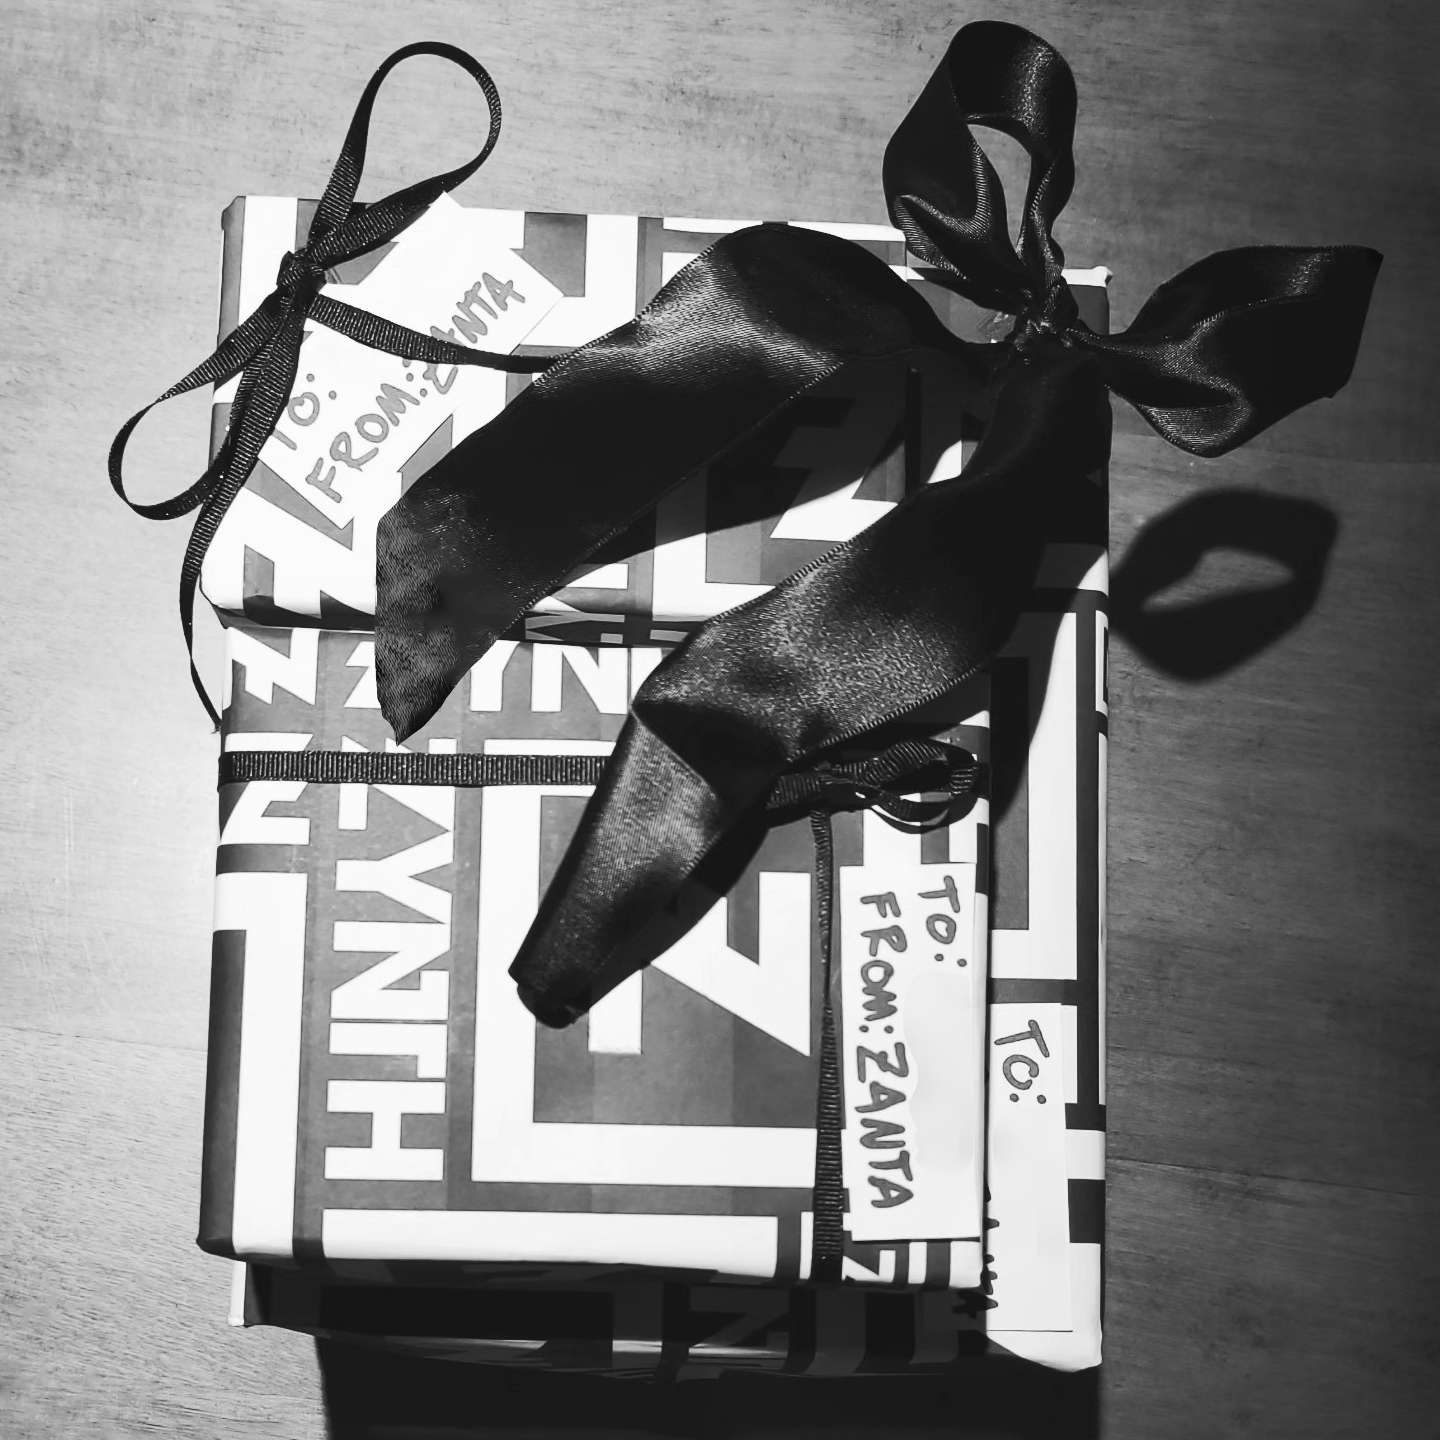 TO:
FROM: ZANTA
ZYNTH
TO:
FROM: ZANTA
TO: